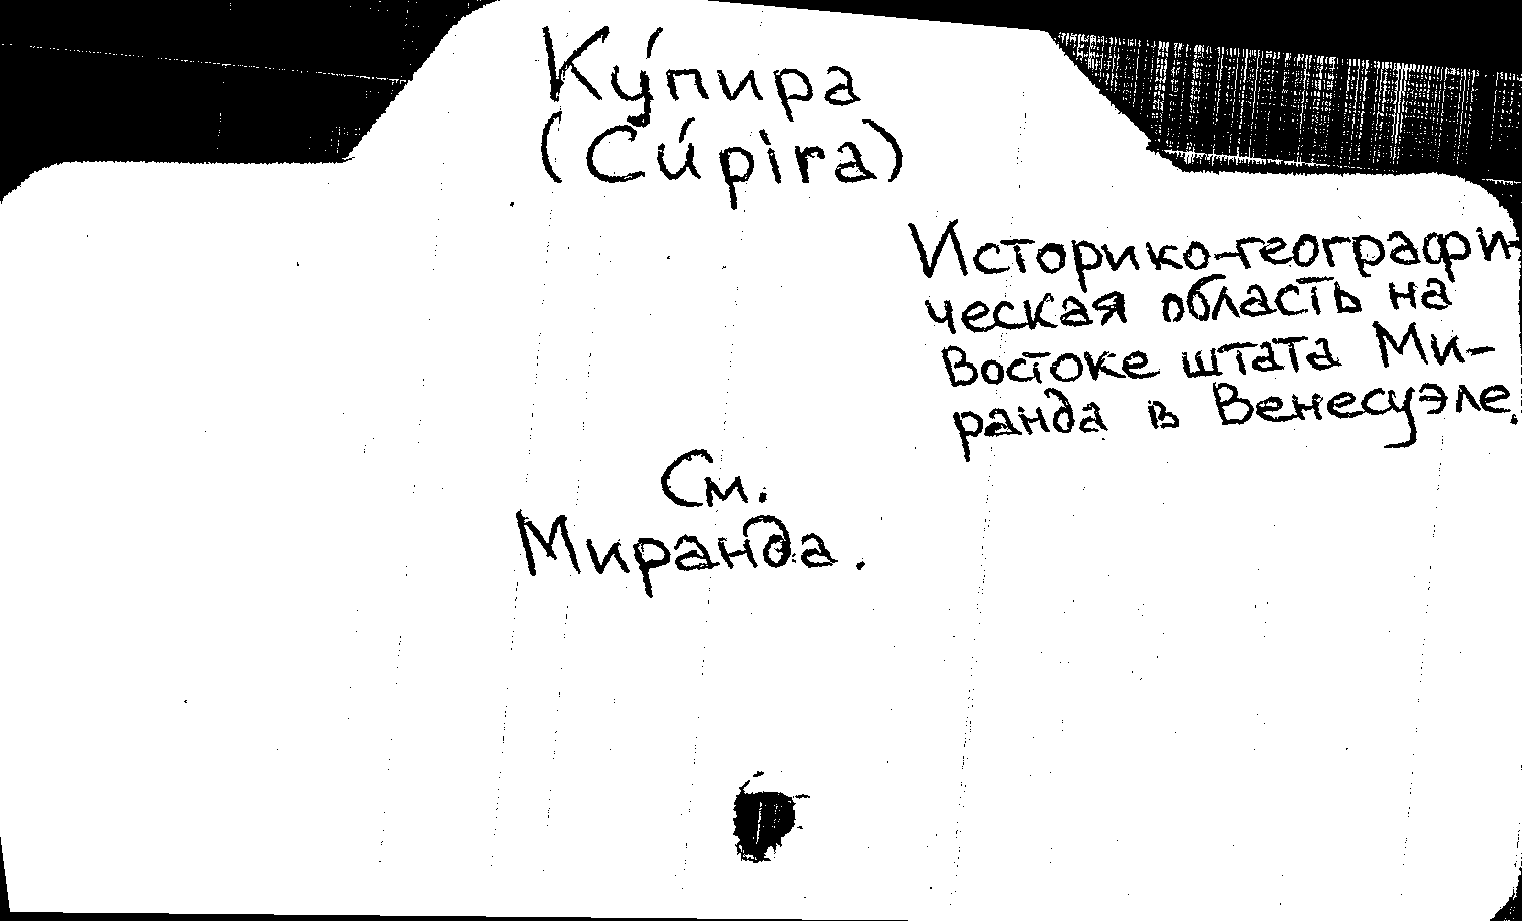 Ку́пира
(Cúpira)
Историко-географи-
ческая область на
Востоке штата Ми-
ранда в Венесуэле.
См.
Миранда.